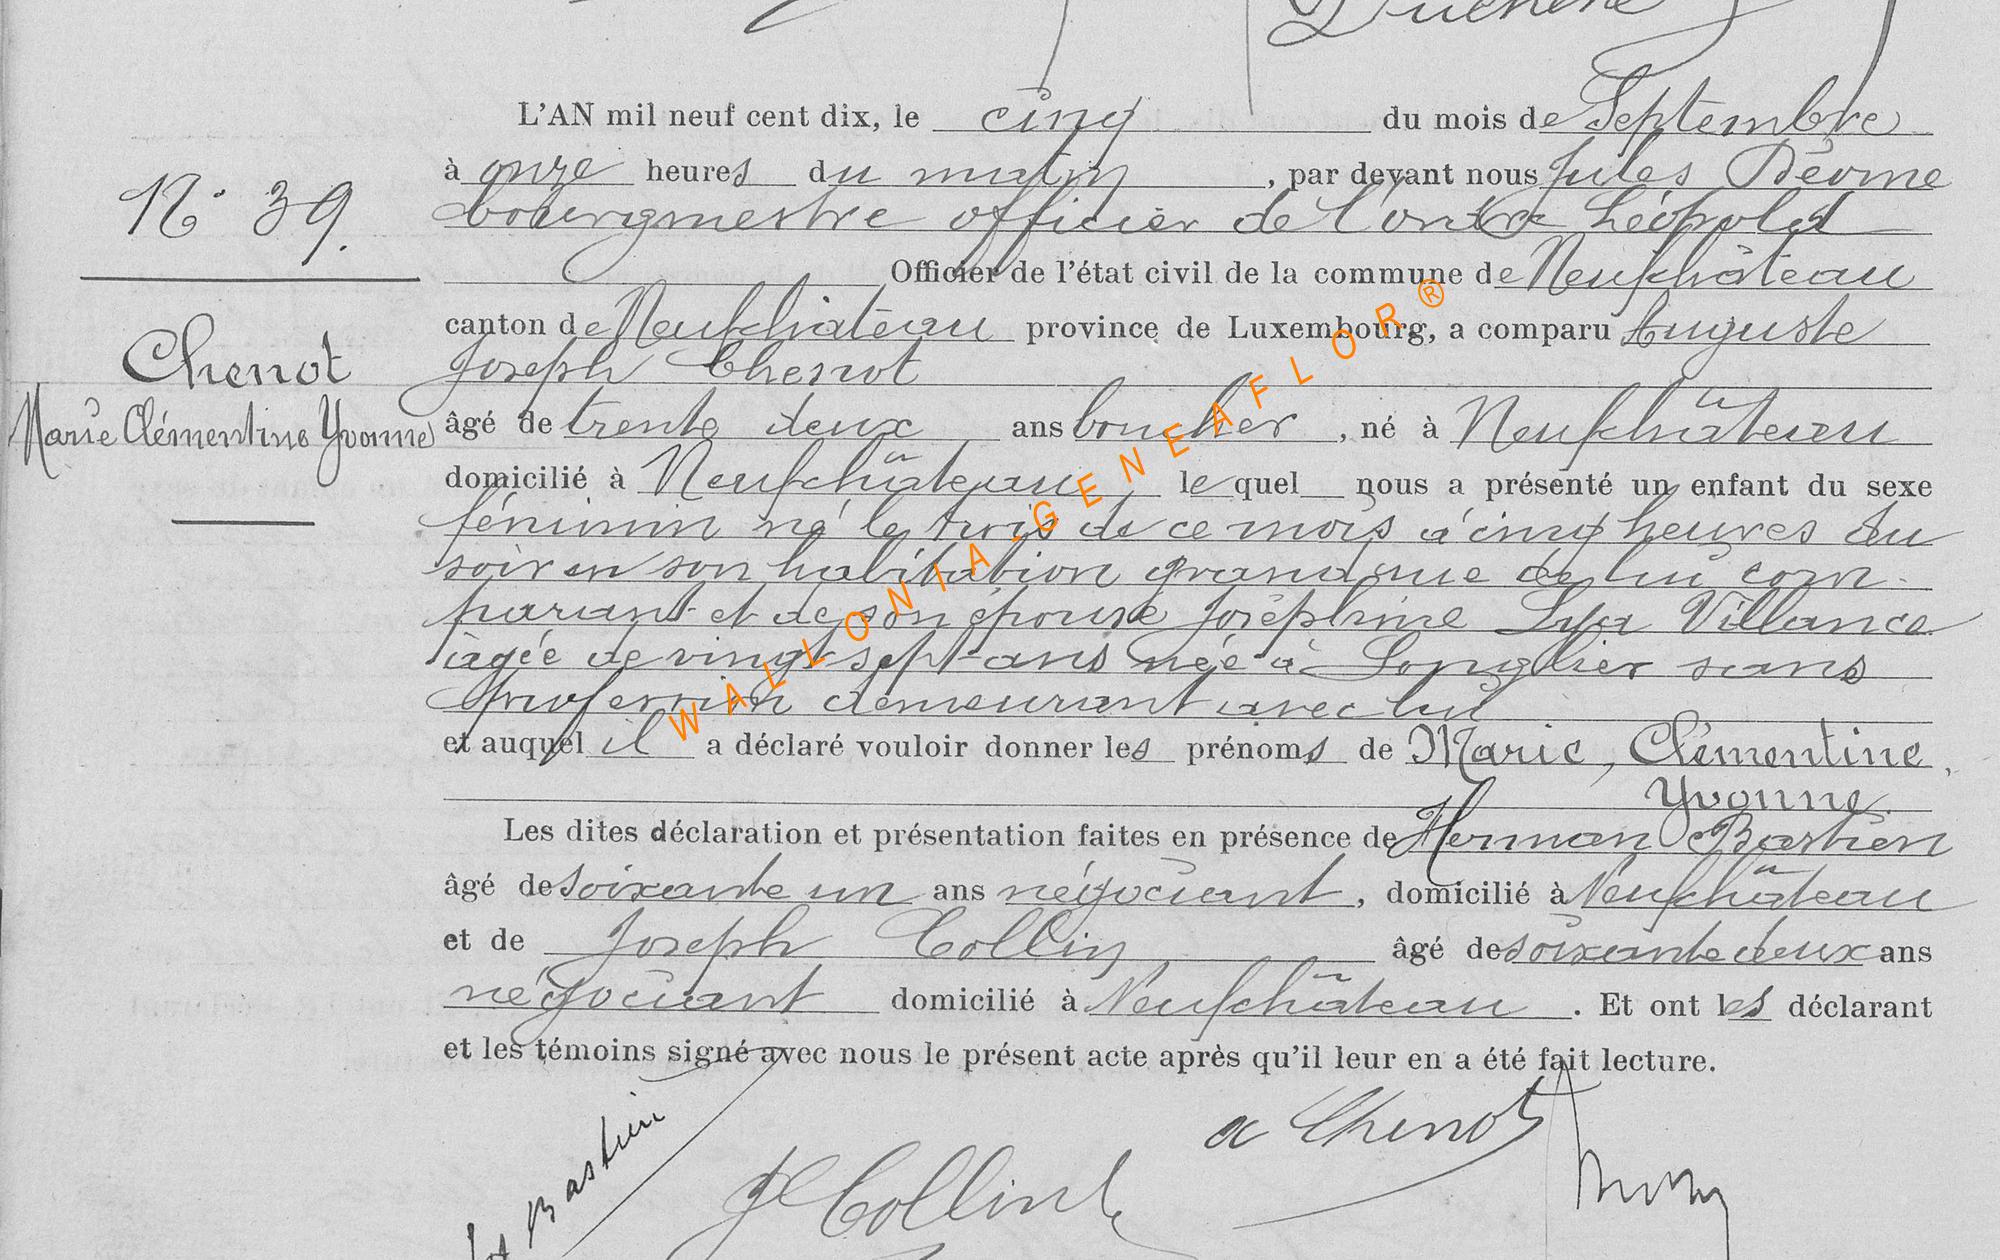 Duchêne
L'AN mil neuf cent dix, le cinq du mois de Septembre
à onze heures du matin, par devant nous Jules
N° 39.
bourgmestre officier de l'ordre Léopold
Officier de l'état civil de la commune de Neufchâteau
canton de Neufchâteau province de Luxembourg, a comparu Auguste
Joseph Chenot
Chenot
Marie Clémentine Yvonne
âgé de trente deux ans boucher, né à Neufchâteau
domicilié à Neufchâteau lequel nous a présenté un enfant du sexe
féminin né le trois de ce mois à cinq heures du
soir en son habitation grand rue de lui com-
parant et de son épouse Joséphine Villance
âgée de vingt sept ans née à Longlier sans
profession demeurant avec lui
et auquel il a déclaré vouloir donner les prénoms de Marie, Clémentine,
Yvonne.
Les dites déclaration et présentation faites en présence de Herman Bastien
âgé de soixante un ans négociant, domicilié à Neufchâteau
et de Joseph Collin âgé de soixante deux ans
négociant domicilié à Neufchâteau. Et ont les déclarant
et les témoins signé avec nous le présent acte après qu'il leur en a été fait lecture.
a Chenot
Bastien
J Collin
WALLONIA-GENEAFLOR®